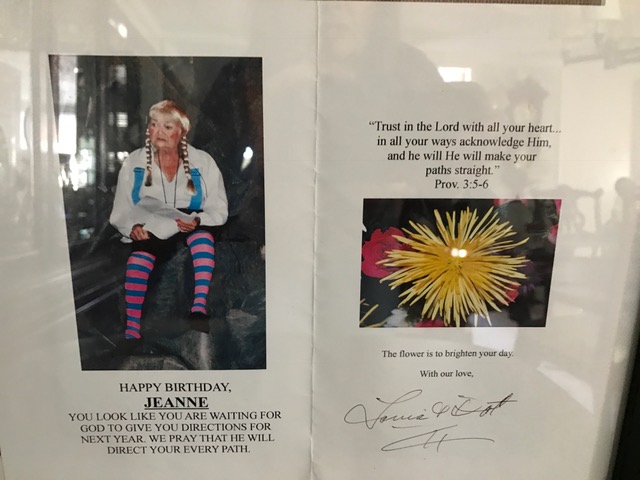 HAPPY BIRTHDAY,
JEANNE
YOU LOOK LIKE YOU ARE WAITING FOR
GOD TO GIVE YOU DIRECTIONS FOR
NEXT YEAR. WE PRAY THAT HE WILL
DIRECT YOUR EVERY PATH.
“Trust in the Lord with all your heart...
in all your ways acknowledge Him,
and he will He will make your
paths straight.”
Prov. 3:5-6
The flower is to brighten your day.
With our love,
Louis & Dot